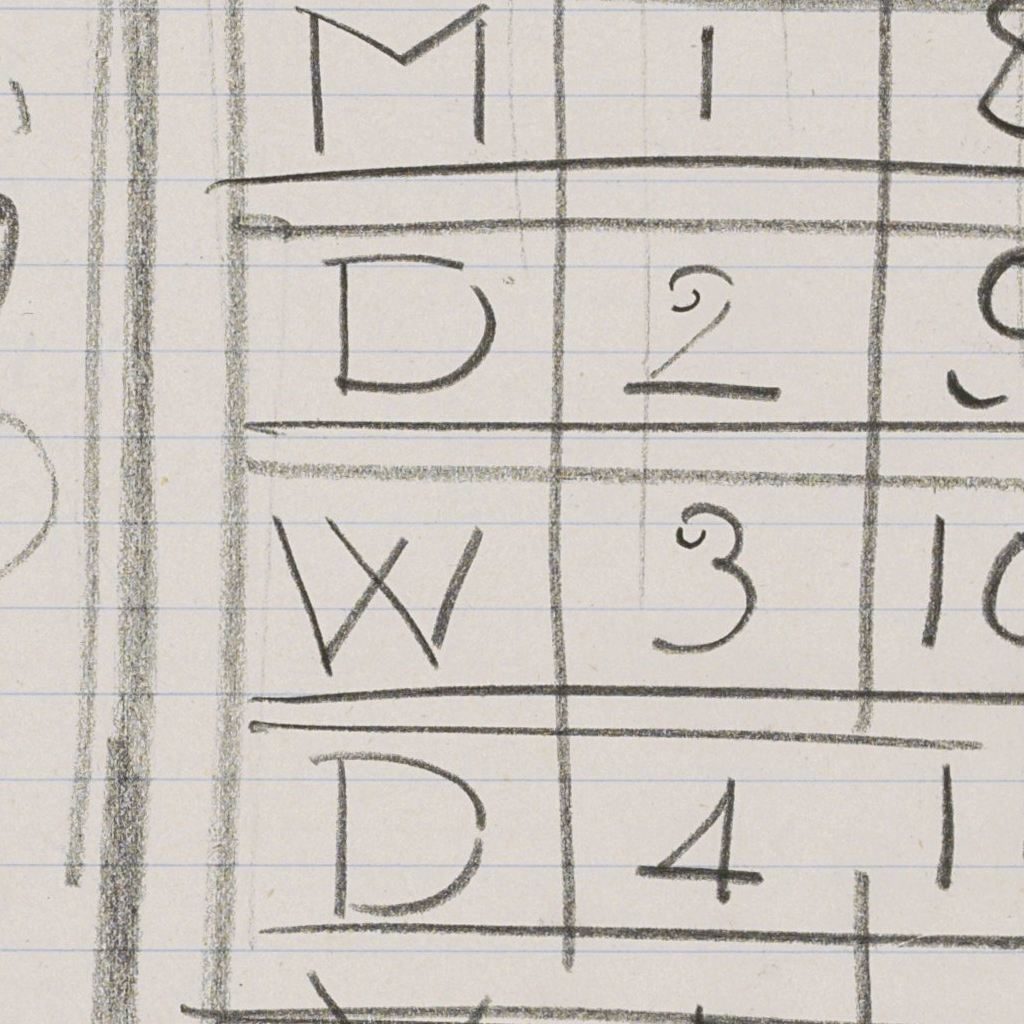 M 1 8
D 2 9
W 3 10
D 4 1